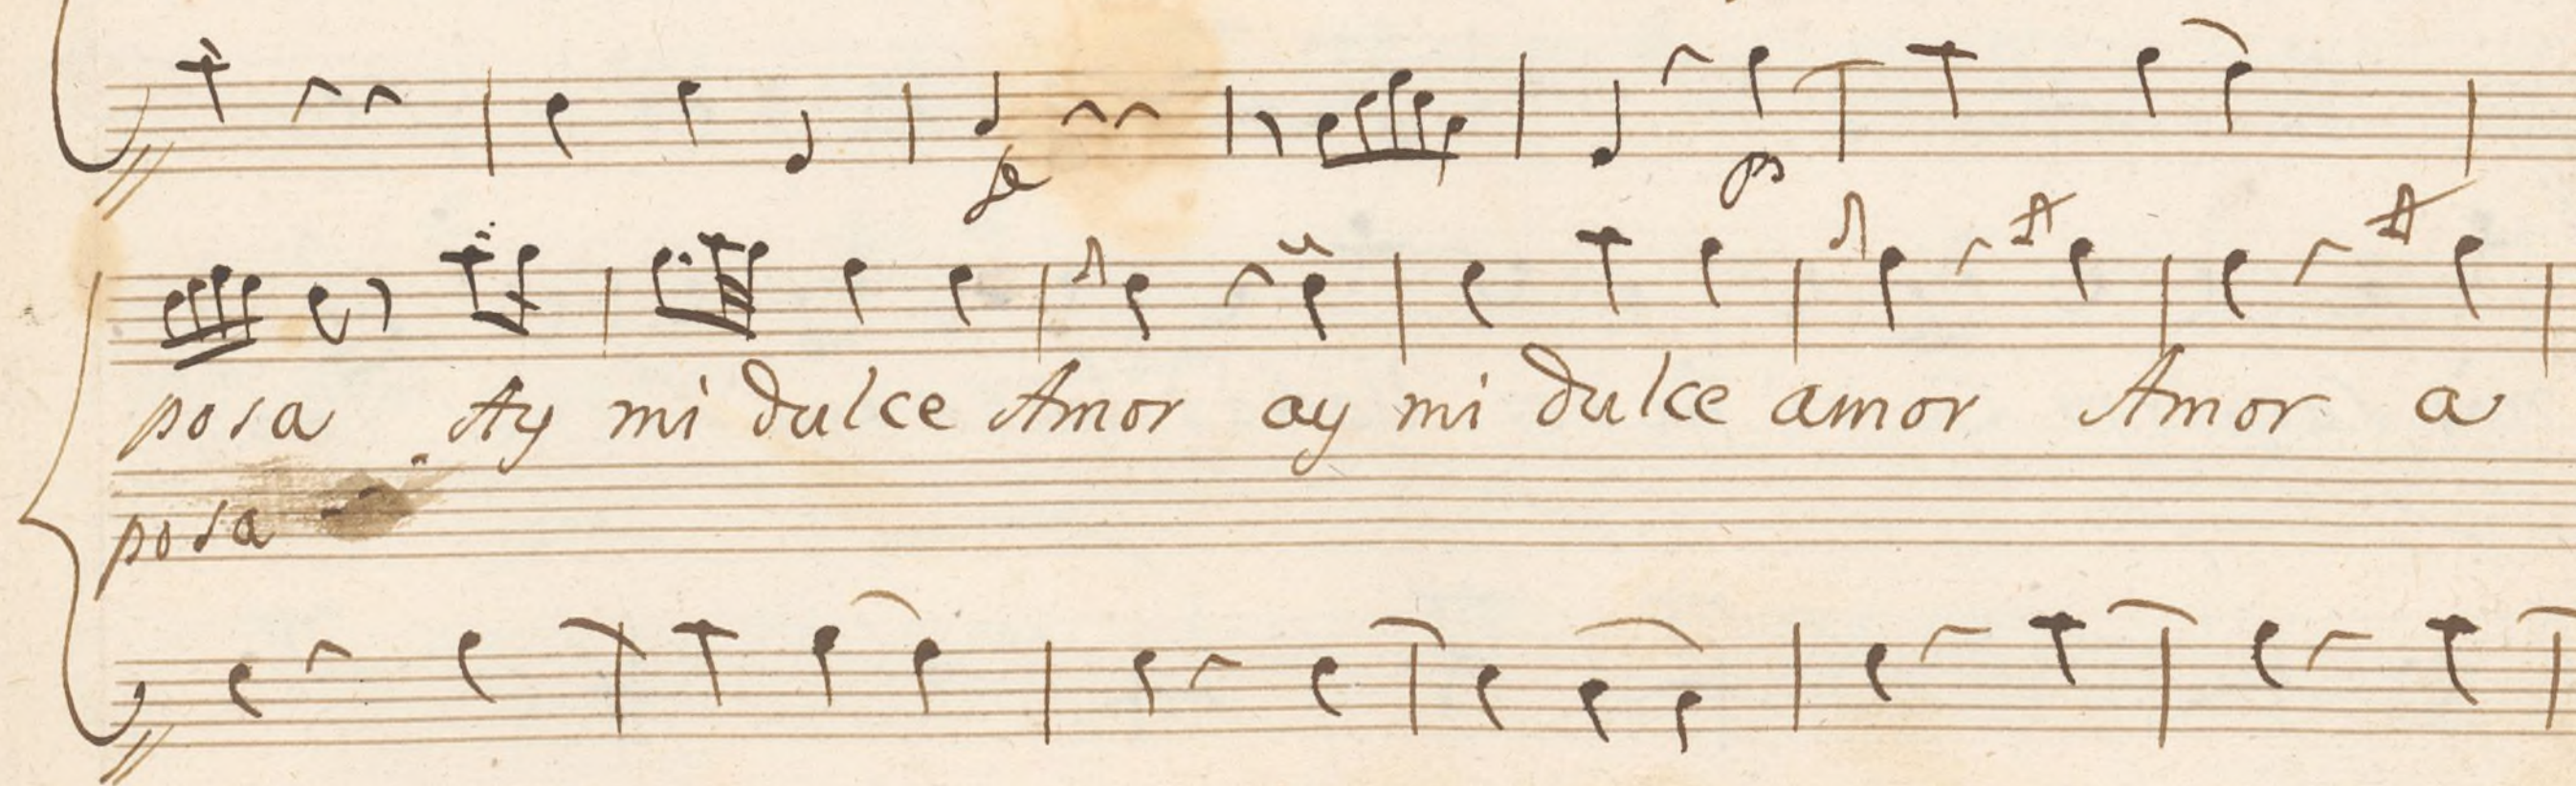 fe p
posa Ay mi dulce Amor ay mi dulce amor Amor a
posa